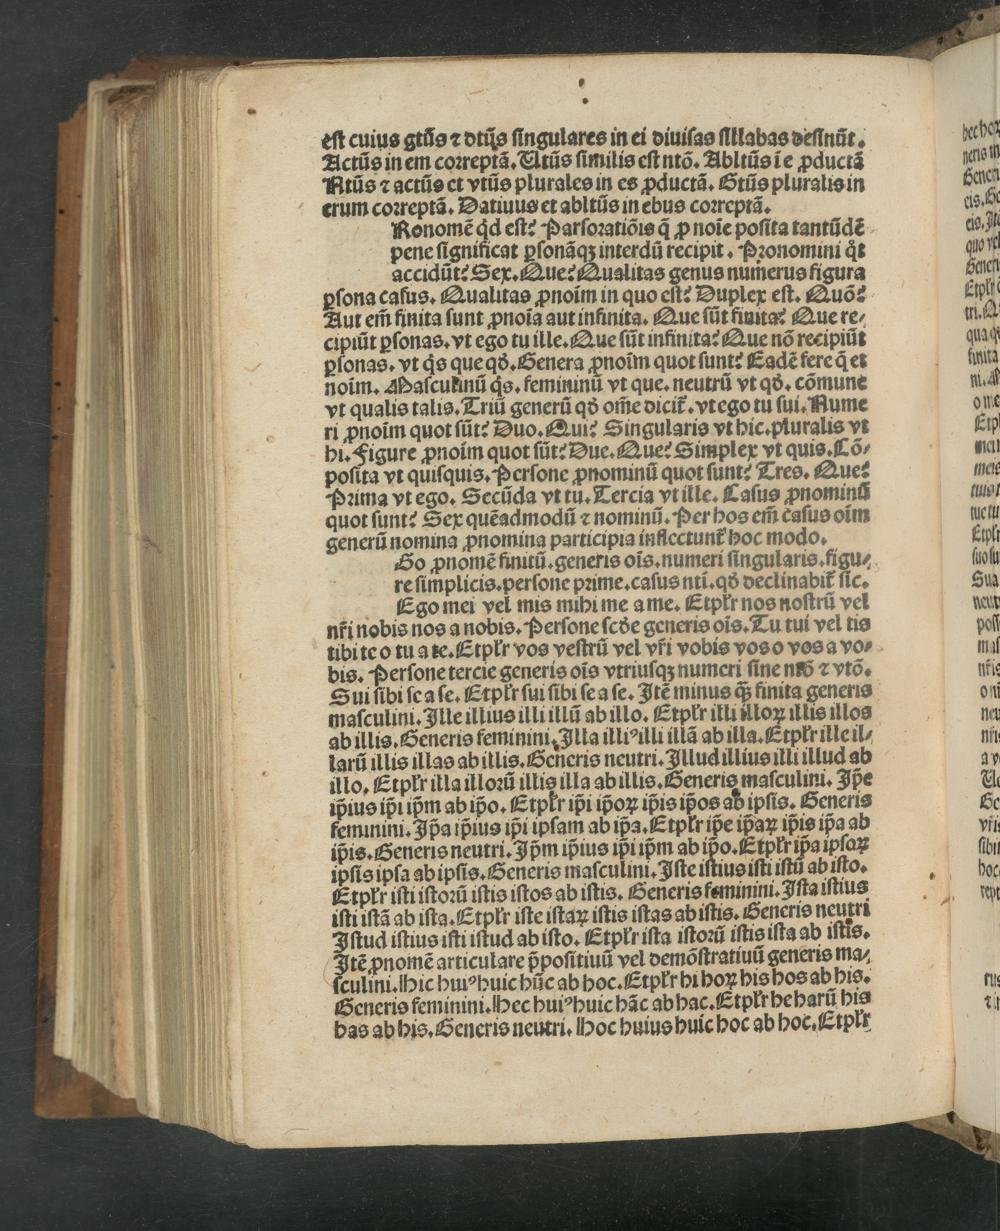 est cuius gtūs ⁊ dtūs singulares in ei diuisas sillabas desinūt.
Actūs in em correptā. Vtūs similis est ntō. Abltūs ī e ꝓductā
Ntūs ⁊ actūs et vtūs plurales in es ꝓductā. Gtūs pluralis in
erum correptā. Datiuus et abltūs in ebus correptā.
Ronomē qͥd est? Pars orationīs q̄ ꝓ noīe posita tantūdē
pene significat ꝑsonāqꝫ interdū recipit. Pronomini qͦt
accidūt? Sex. Que? Qualitas genus numerus figura
ꝑsona casus. Qualitas ꝓnoīm in quo est? Duplex est. Quō?
Aut em̄ finita sunt ꝓnoīa aut infinita. Que sūt finita? Que re⸗
cipiūt ꝑsonas. vt ego tu ille. Que sūt infinita? Que nō recipiūt
ꝑsonas. vt qͥs que qd̄. Genera ꝓnoīm quot sunt? Eadē fere q̄ et
noīm. Masculinū qͥs. femininū vt que. neutrū vt qd̄. cōmune
vt qualis talis. Triū generū qd̄ om̄e dicit᷑. vt ego tu sui. Nume
ri ꝓnoīm quot sūt? Duo. Qui? Singularis vt hic. pluralis vt
hi. Figure ꝓnoīm quot sūt? Due. Que? Simplex vt quis. Cō⸗
posita vt quisquis. Persone ꝓnominū quot sunt? Tres. Que?
Prima vt ego. Secūda vt tu. Tercia vt ille. Casus ꝓnominū
quot sunt? Sex quēadmodū ⁊ nominū. Per hos em̄ casus oīm
generū nomina ꝓnomina participia inflectunt᷑ hoc modo.
Go ꝓnomē finitū. generis oīs. numeri singularis. figu⸗
re simplicis. persone prime. casus ntī. qd̄ declinabit᷑ sic.
Ego mei vel mis mihi me a me. Etpl̄r nos nostrū vel
nr̄i nobis nos a nobis. Persone scd̄e generis oīs. Tu tui vel tis
tibi te o tu a te. Etpl̄r vos vestrū vel vr̄i vobis vos o vos a vo⸗
bis. Persone tercie generis oīs vtriusqꝫ numeri sine ntō ⁊ vtō.
Sui sibi se a se. Etpl̄r sui sibi se a se. Itē minus qꝫ̄ finita generis
masculini. Ille illius illi illū ab illo. Etpl̄r illi illoꝝ illis illos
ab illis. Generis feminini. Illa illiꝰ illi illā ab illa. Etpl̄r ille il⸗
larū illis illas ab illis. Generis neutri. Illud illius illi illud ab
illo. Etpl̄r illa illorū illis illa ab illis. Generis masculini. Ip̄e
ip̄ius ip̄i ip̄m ab ip̄o. Etpl̄r ip̄i ip̄oꝝ ip̄is ip̄os ab ipsis. Generis
feminini. Ip̄a ip̄ius ip̄i ipsam ab ip̄a. Etpl̄r ip̄e ip̄aꝝ ip̄is ip̄a ab
ip̄is. Generis neutri. Ip̄m ip̄ius ip̄i ip̄m ab ip̄o. Etpl̄r ip̄a ipsoꝝ
ipsis ipsa ab ipsis. Generis masculini. Iste istius isti istū ab isto.
Etpl̄r isti istorū istis istos ab istis. Generis feminini. Ista istius
isti istā ab ista. Etpl̄r iste istaꝝ istis istas ab istis. Generis neutri
Istud istius isti istud ab isto. Etpl̄r ista istorū istis ista ab istis.
Itē ꝓnomē articulare p̄positiuū vel demōstratiuū generis ma⸗
sculini. Hic huiꝰ huic hūc ab hoc. Etpl̄r hi hoꝝ his hos ab his.
Generis feminini. Hec huiꝰ huic hāc ab hac. Etpl̄r he harū his
has ab his. Generis neutri. Hoc huius huic hoc ab hoc. Etpl̄r